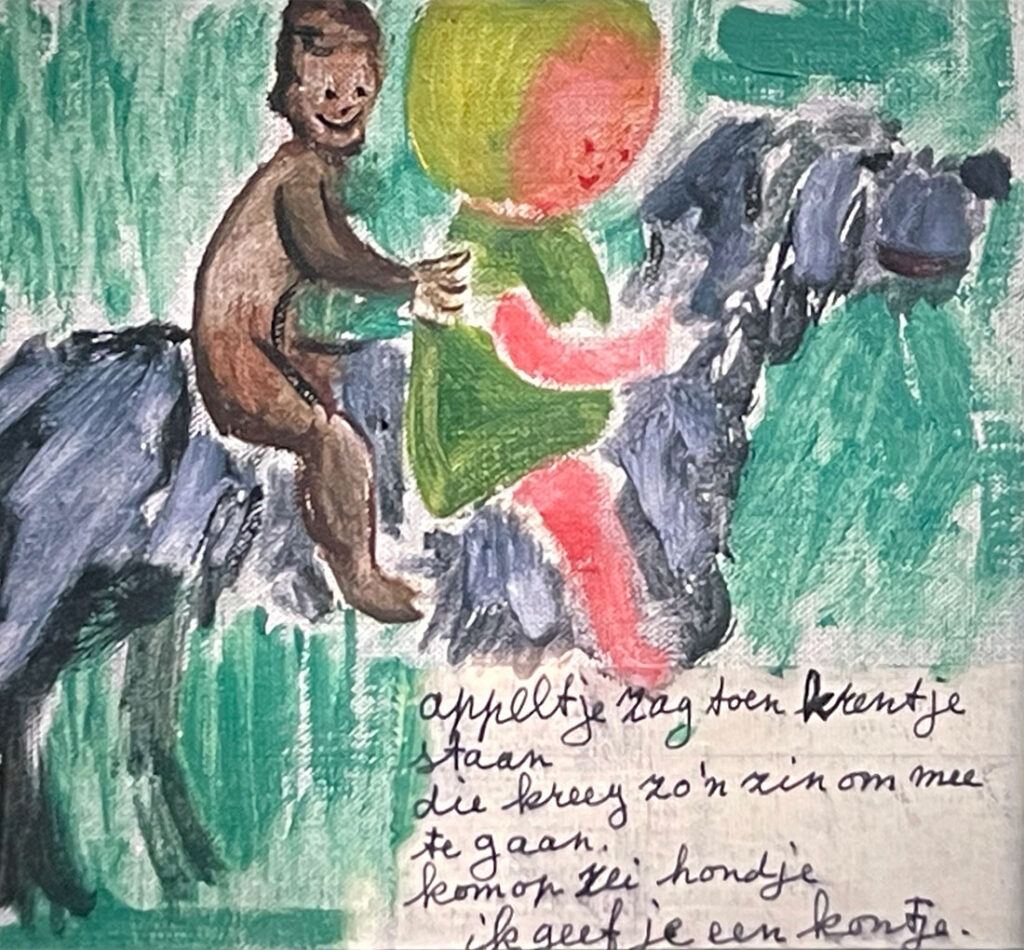 appeltje zag toen krentje
staan
die kreeg zo'n zin om mee
te gaan.
kom op zei hondje
ik geef je een kontje.